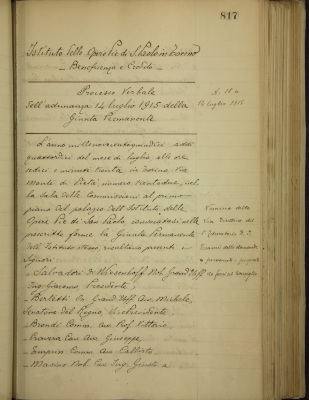 817
Istituto delle Opere Pie di S. Paolo in Torino
- Beneficenza e Credito -
Processo Verbale
dell'adunanza 14 luglio 1915 della
Giunta Permanente
N. 18
14 luglio 1915
L'anno millenovecentoquindici, addì
quattordici del mese di luglio, alle ore
sedici e minuti trenta, in Torino, Via
Monte di Pietà, numero trentadue, nel
la Sala delle Commissioni al primo
piano del palazzo dell'Istituto delle
Opere Pie di San Paolo, convocatasi nelle
prescritte forme la Giunta Permanente
dell'Istituto stesso, risultano presenti i
Signori
- Salvadori di Wiesenhoff Nob. Grand'Uff.
Ing. Giacomo, Presidente
- Bertetti Gr. Uff. Avv. Michele,
Senatore del Regno, Vice Presidente
- Brondi Comm. Avv. Prof. Vittorio
- Cravero Cav. Avv. Giuseppe
- Comm. Avv. Calisto
- Nob. Cav. Ing.